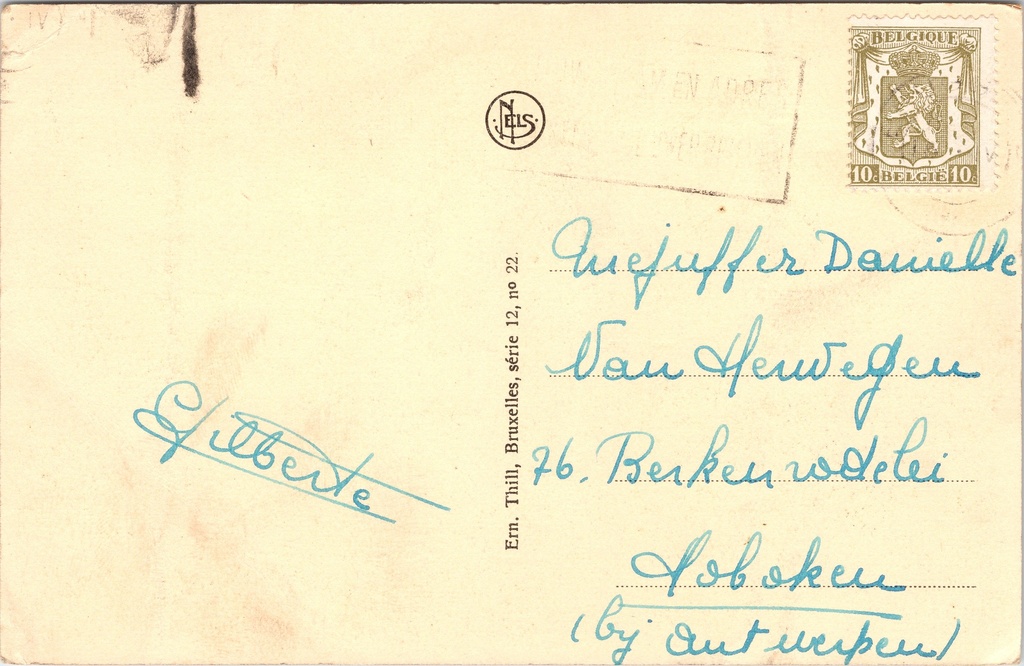 BELGIQUE
10c BELGIË 10c
NELS
Mejuffer Danielle
Van Herwegen
76. Berkenrodelei
Hoboken
(bij Antwerpen)
Ern. Thill, Bruxelles, série 12, nº 22.
Gilberte